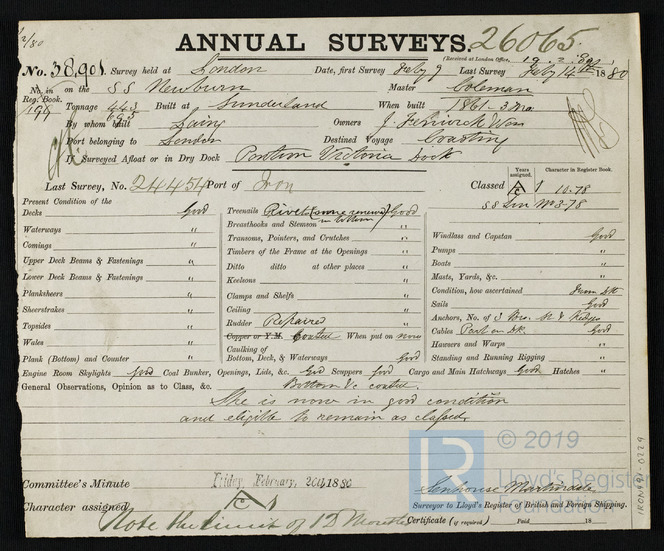 2/80
ANNUAL SURVEYS. 26065
(Received at London Office,
No. 38,901. Survey held at London Date, first Survey Feby 9 Last Survey Feby 14th 1880
No. in Reg. Book. on the SS Newburn Master Coleman
199 Tonnage 443 695 Built at Sunderland When built 1861-3 mo
By whom built Laing Owners J. Fenwick
Port belonging to London Destined Voyage Coasting
If Surveyed Afloat or in Dry Dock Pontoon Victoria Dock
Last Survey, No. 24454 Port of Iron Classed Years assigned. A 1 Character in Register Book. 10.78
SS Lon No 3-78
Present Condition of the
Decks Good Treenails Rivets (some renewed in bottom) Good
Waterways " Breasthooks and Stemson " Windlass and Capstan Good
Comings " Transoms, Pointers, and Crutches " Pumps "
Upper Deck Beams & Fastenings " Timbers of the Frame at the Openings " Boats "
Lower Deck Beams & Fastenings " Ditto ditto at other places " Masts, Yards, &c. "
Planksheers " Keelsons " Condition, how ascertained from Dk
Sheerstrakes " Clamps and Shelfs " Sails Good
Topsides " Ceiling " Anchors, No. of 3
Wales " Rudder Repaired Cables Part on Dk. Good
Copper or Y.M. Coated When put on now Hawsers and Warps "
Plank (Bottom) and Counter " Caulking of Bottom, Deck, & Waterways Good Standing and Running Rigging "
Engine Room Skylights good Coal Bunker, Openings, Lids, &c. Good Scuppers good Cargo and Main Hatchways Good Hatches "
General Observations, Opinion as to Class, &c. Bottom &c coated.
She is now in good condition
and eligible to remain as classed.
© 2019
Lloyd's Register
Foundation
LR
Committee's Minute Friday, February, 20th 1880
Senhouse Martindale
Character assigned A 1
Surveyor to Lloyd's Register of British and Foreign Shipping.
Note the limit of 12 Months
Certificate (if required) Paid 18
IRON991-0229